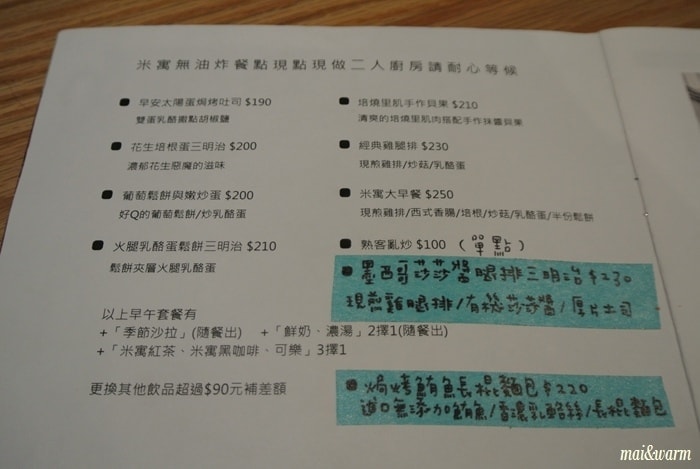 米寓無油炸餐點現點現做二人廚房請耐心等候
早安太陽蛋焗烤吐司 $190
雙蛋乳酪撒點胡椒鹽
花生培根蛋三明治 $200
濃郁花生惡魔的滋味
葡萄鬆餅與嫩炒蛋 $200
好Q的葡萄鬆餅/炒乳酪蛋
火腿乳酪蛋鬆餅三明治 $210
鬆餅夾層火腿乳酪蛋
培燒里肌手作貝果 $210
清爽的培燒里肌肉搭配手作抹醬貝果
經典雞腿排 $230
現煎雞排/炒菇/乳酪蛋
米寓大早餐 $250
現煎雞排/西式香腸/培根/炒菇/乳酪蛋/半份鬆餅
熟客亂炒 $100 (單點)
墨西哥莎莎醬腿排三明治 $230
現煎雞腿排/有機莎莎醬/厚片土司
焗烤鮪魚長棍麵包 $220
進口無添加鮪魚/香濃乳酪絲/長棍麵包
以上早午套餐有
+「季節沙拉」(隨餐出) +「鮮奶、濃湯」2擇1(隨餐出)
+「米寓紅茶、米寓黑咖啡、可樂」3擇1
更換其他飲品超過$90元補差額
mai&warm